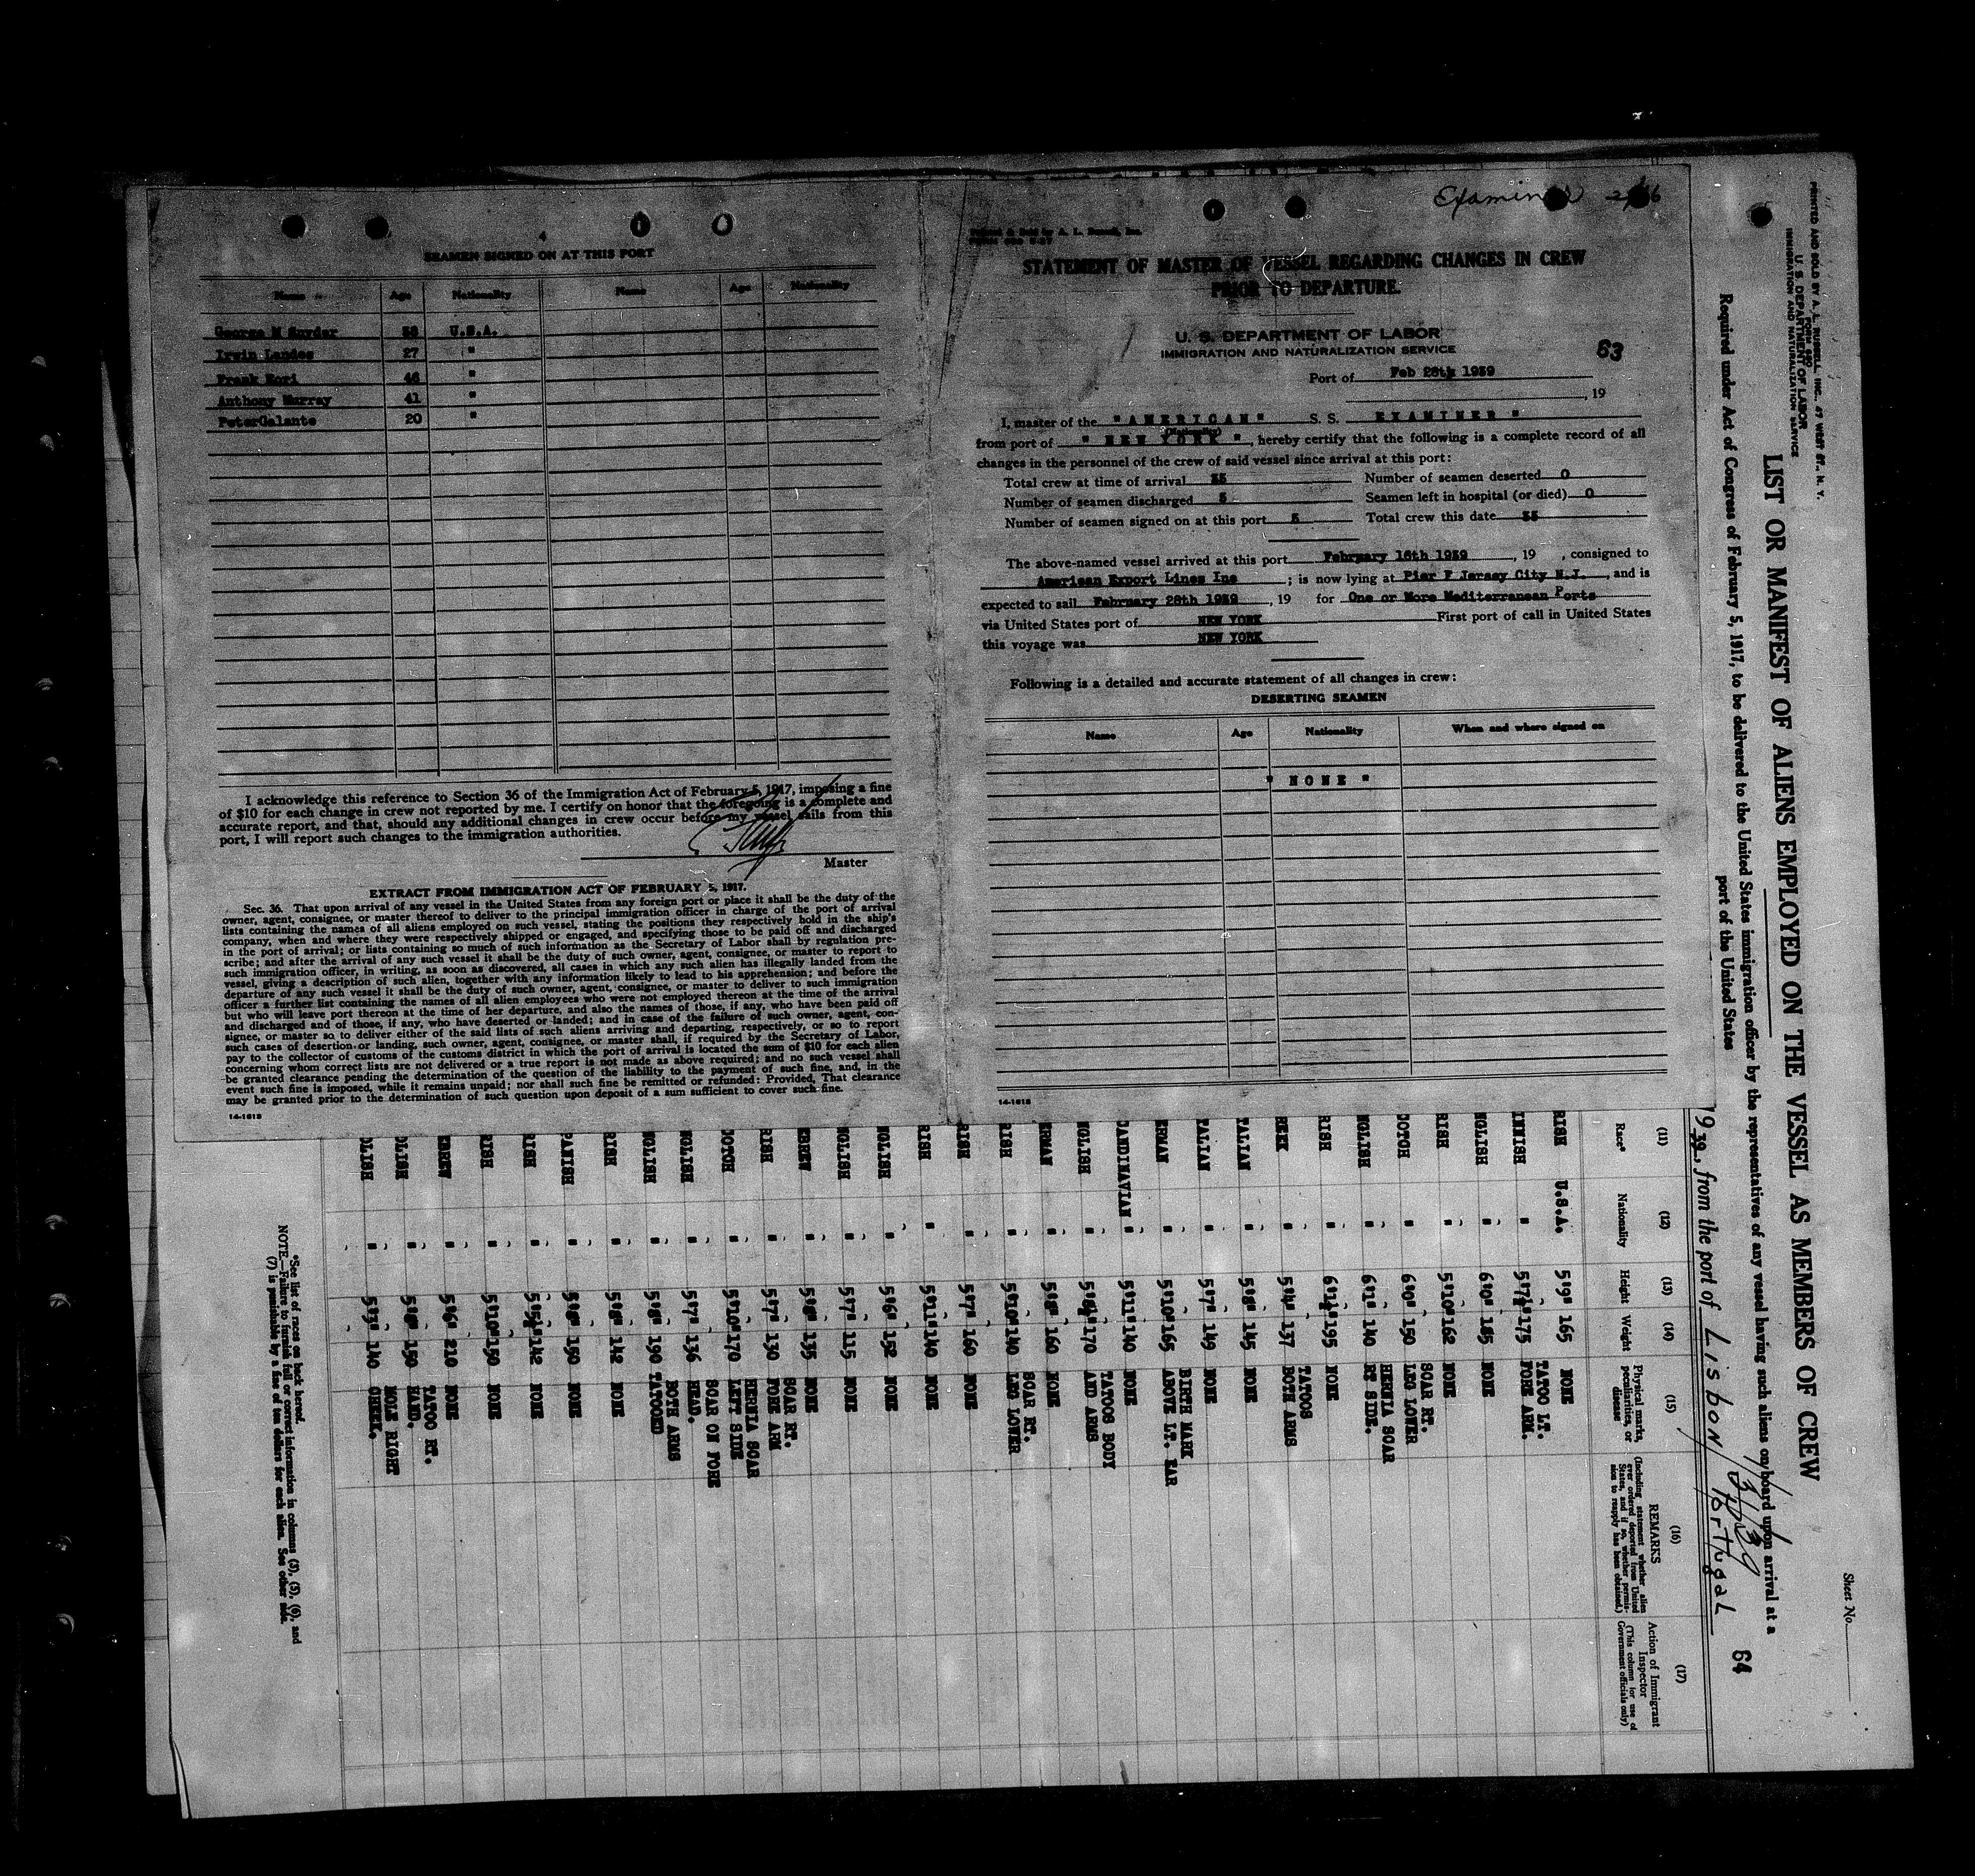 SEAMEN SIGNED ON AT THIS PORT
Name Age Nationality Name Age Nationality
George M Snyder 38 U.S.A.
Irwin Landes 27 "
Frank Kori 46 "
Anthony Murray 41 "
PeterGalante 20 "
I acknowledge this reference to Section 36 of the Immigration Act of February 5, 1917, imposing a fine
of $10 for each change in crew not reported by me. I certify on honor that the foregoing is a complete and
accurate report, and that, should any additional changes in crew occur before my vessel sails from this
port, I will report such changes to the immigration authorities.
Master
EXTRACT FROM IMMIGRATION ACT OF FEBRUARY 5, 1917.
Sec. 36. That upon arrival of any vessel in the United States from any foreign port or place it shall be the duty of the
owner, agent, consignee, or master thereof to deliver to the principal immigration officer in charge of the port of arrival
lists containing the names of all aliens employed on such vessel, stating the positions they respectively hold in the ship's
company, when and where they were respectively shipped or engaged, and specifying those to be paid off and discharged
in the port of arrival; or lists containing so much of such information as the Secretary of Labor shall by regulation pre-
scribe; and after the arrival of any such vessel it shall be the duty of such owner, agent, consignee, or master to report to
such immigration officer, in writing, as soon as discovered, all cases in which any such alien has illegally landed from the
vessel, giving a description of such alien, together with any information likely to lead to his apprehension; and before the
departure of any such vessel it shall be the duty of such owner, agent, consignee, or master to deliver to such immigration
officer a further list containing the names of all alien employees who were not employed thereon at the time of the arrival
but who will leave port thereon at the time of her departure, and also the names of those, if any, who have been paid off
and discharged and of those, if any, who have deserted or landed; and in case of the failure of such owner, agent, con-
signee, or master so to deliver either of the said lists of such aliens arriving and departing, respectively, or so to report
such cases of desertion or landing, such owner, agent, consignee, or master shall, if required by the Secretary of Labor,
pay to the collector of customs of the customs district in which the port of arrival is located the sum of $10 for each alien
concerning whom correct lists are not delivered or a true report is not made as above required; and no such vessel shall
be granted clearance pending the determination of the question of the liability to the payment of such fine, and, in the
event such fine is imposed, while it remains unpaid; nor shall such fine be remitted or refunded: Provided, That clearance
may be granted prior to the determination of such question upon deposit of a sum sufficient to cover such fine.
14-1618
Examiner 2/16
STATEMENT OF MASTER OF VESSEL REGARDING CHANGES IN CREW
PRIOR TO DEPARTURE.
U. S. DEPARTMENT OF LABOR
IMMIGRATION AND NATURALIZATION SERVICE
63
Port of Feb 28th 1939
, 19
I, master of the "AMERICAN" S. S. EXAMINER "
(Nationality)
from port of " NEW YORK ", hereby certify that the following is a complete record of all
changes in the personnel of the crew of said vessel since arrival at this port:
Total crew at time of arrival 35 Number of seamen deserted 0
Number of seamen discharged 5 Seamen left in hospital (or died) 0
Number of seamen signed on at this port 5 Total crew this date 35
The above-named vessel arrived at this port February 16th 1939, 19 , consigned to
American Export Lines Inc ; is now lying at Pier F Jersey City N.J. , and is
expected to sail February 28th 1939, 19 for One or More Mediterranean Ports
via United States port of NEW YORK First port of call in United States
this voyage was NEW YORK
Following is a detailed and accurate statement of all changes in crew:
DESERTING SEAMEN
Name Age Nationality When and where signed on
" NONE "
14-1618
PRINTED AND SOLD BY A. L. RUSSELL, INC., 67 WEST ST., N. Y.
U. S. DEPARTMENT OF LABOR
IMMIGRATION AND NATURALIZATION SERVICE
Sheet No.
LIST OR MANIFEST OF ALIENS EMPLOYED ON THE VESSEL AS MEMBERS OF CREW
Required under Act of Congress of February 5, 1917, to be delivered to the United States immigration officer by the representatives of any vessel having such aliens on board upon arrival at a
port of the United States
3/1/39
64
1939, from the port of Lisbon, Portugal
(11) (12) (13) (14) (15) (16) (17)
Race* Nationality Height Weight Physical marks, peculiarities, or disease REMARKS (Including statement whether alien ever ordered deported from United States, and if so, whether permission to reapply has been obtained.) Action of Immigrant Inspector (This column for use of Government officials only)
RISH U.S.A. 5'9" 165 NONE
INNISH " 5'7½" 175 TATOO LT. FORE ARM.
NGLISH " 6'0" 185 NONE
RISH " 5'10" 162 NONE
COTCH " 6'0" 150 SCAR RT. LEG LOWER
NGLISH " 6'1" 140 HERNIA SCAR RT SIDE.
RISH " 6'1½" 195 NONE
REEK " 5'4" 137 TATOOS BOTH ARMS
TALIAN " 5'8" 145 NONE
TALIAN " 5'7" 149 NONE
ERMAN " 5'10" 165 BIRTH MARK ABOVE LT. EAR
CANDINAVIAN " 5'11" 140 NONE
NGLISH " 5'6½" 170 TATOOS BODY AND ARMS
ERMAN " 5'8" 160 NONE
RISH " 5'10" 140 SCAR RT. LEG LOWER
RISH " 5'7" 160 NONE
RISH " 5'11" 140 NONE
NGLISH " 5'6" 152 NONE
NGLISH " 5'7" 115 NONE
EBREW " 5'8" 135 NONE
RISH " 5'7" 130 SCAR RT. FORE ARM
COTCH " 5'10" 170 HERNIA SCAR LEFT SIDE
NGLISH " 5'7" 136 SCAR ON FORE HEAD.
NGLISH " 5'8" 190 BOTH ARMS TATOOED
RISH " 5'6" 142 NONE
PANISH " 5'8" 150 NONE
RISH " 5'5½" 142 NONE
RISH " 5'10" 150 NONE
EBREW " 5'6" 210 NONE
OLISH " 5'8" 150 TATOO RT. HAND.
OLISH " 5'3" 140 MOLE RIGHT CHEEK.
*See list of races on back hereof.
NOTE.—Failure to furnish full or correct information in columns (3), (5), (6), and
(7) is punishable by a fine of ten dollars for each alien. See other side.